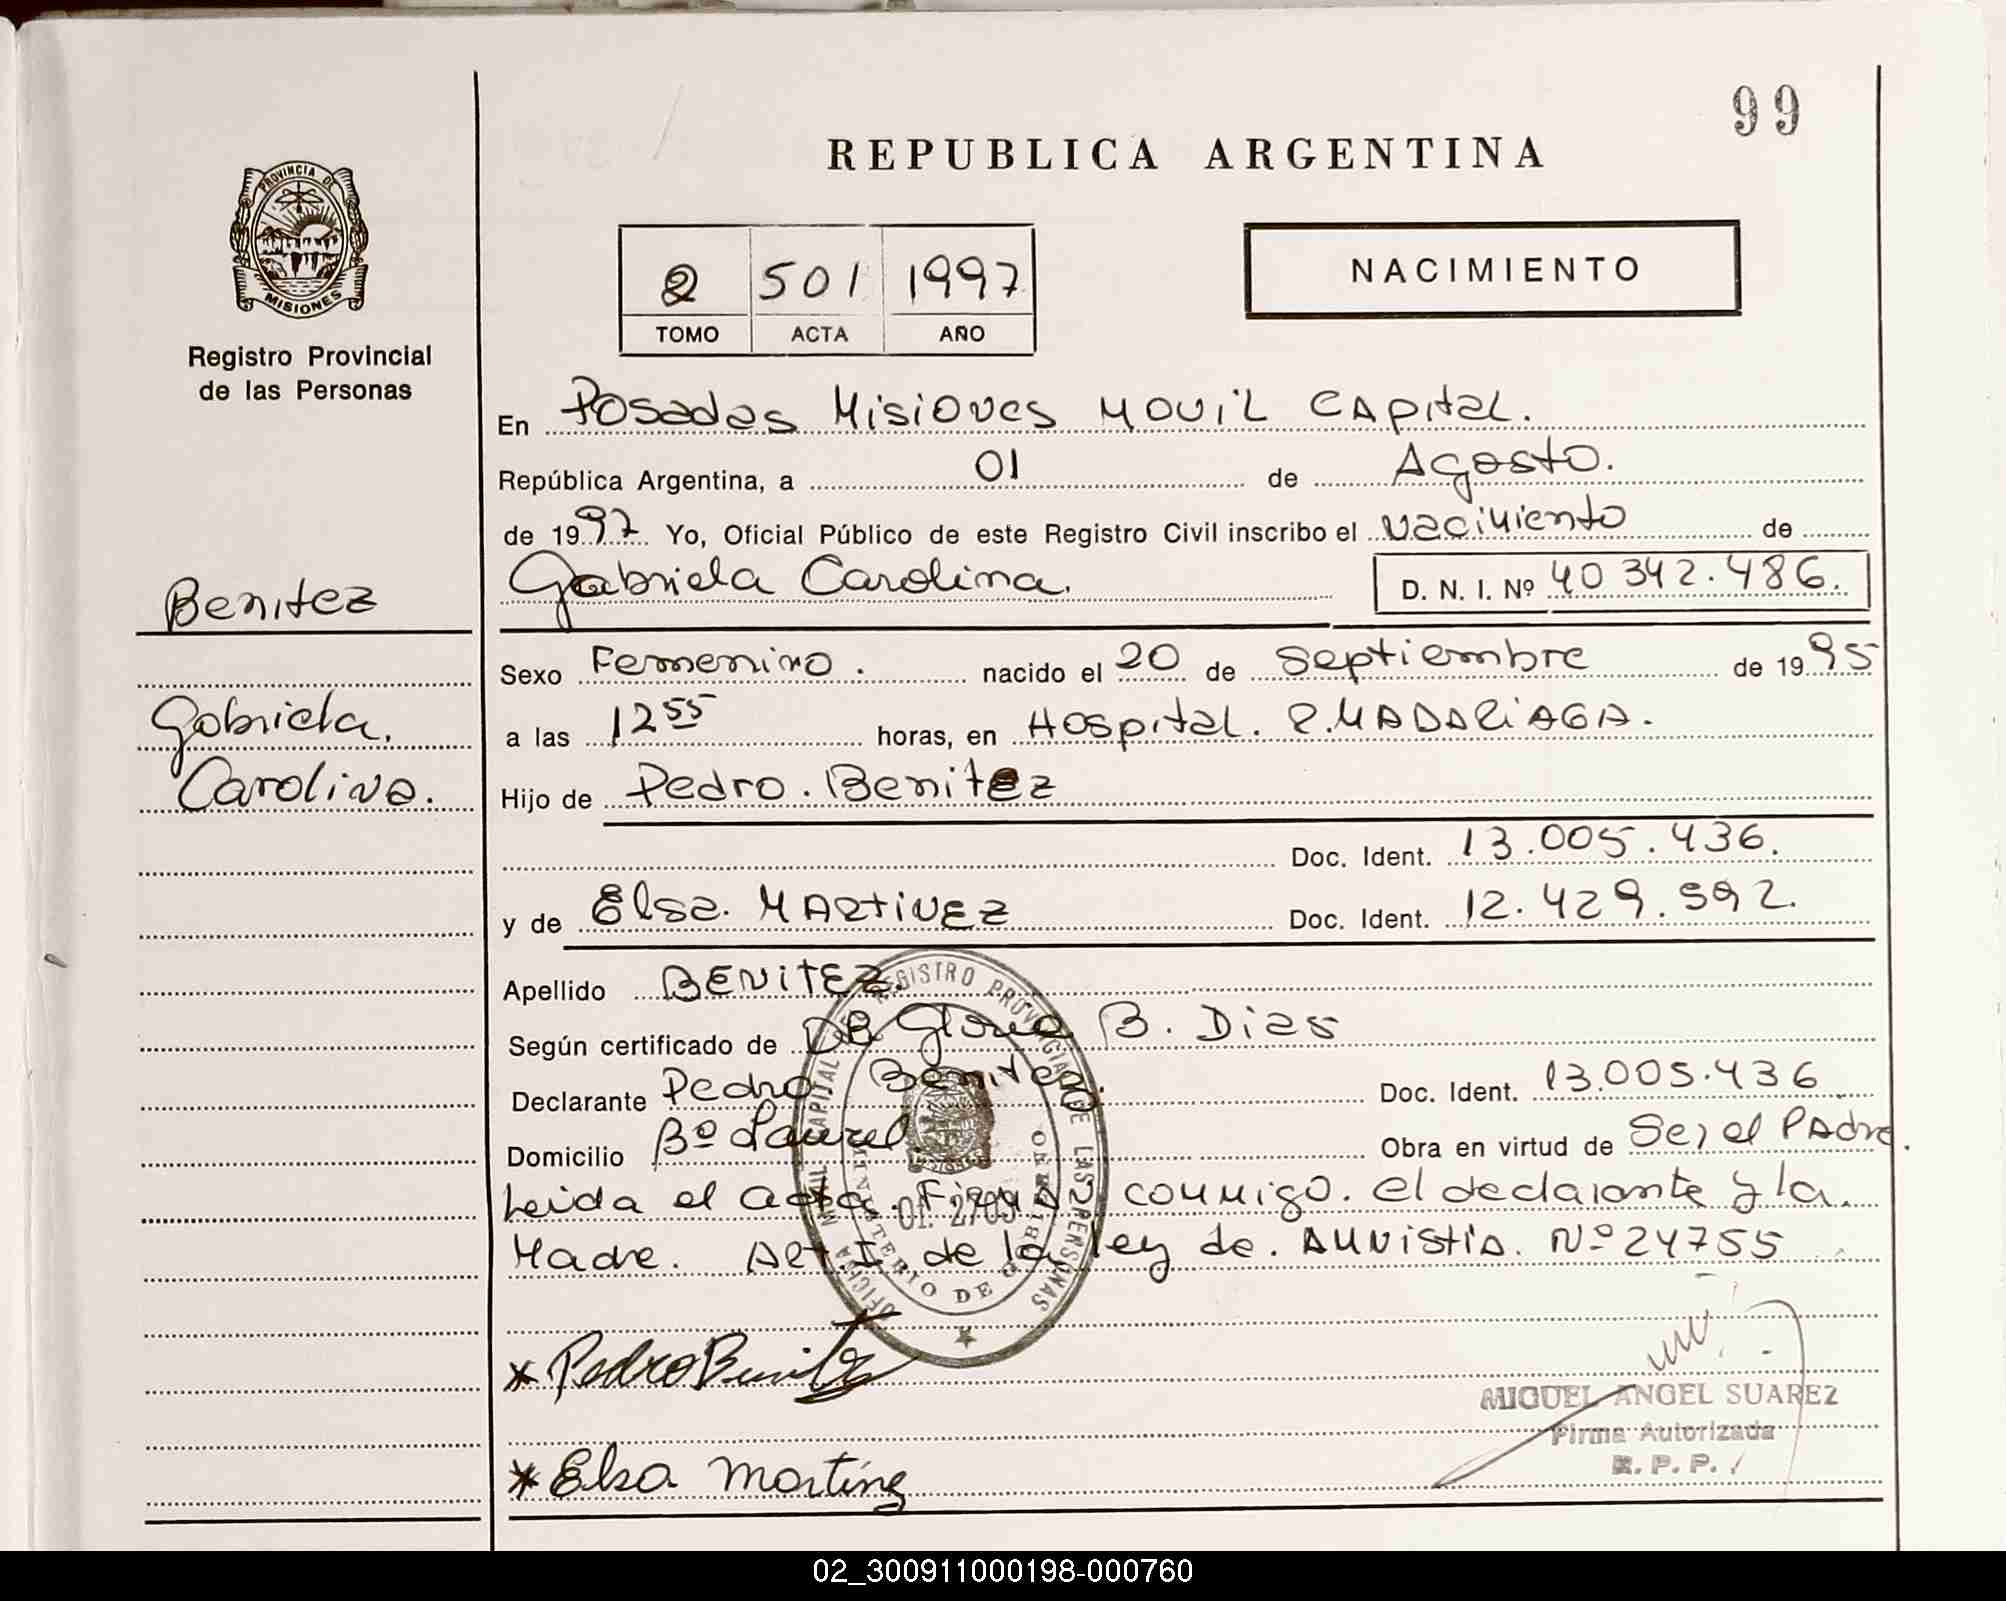 99
REPUBLICA ARGENTINA
PROVINCIA DE
MISIONES
Registro Provincial
de las Personas
2 501 1997
TOMO ACTA AÑO
NACIMIENTO
En Posadas Misiones Movil Capital.
República Argentina, a 01 de Agosto.
de 1997 Yo, Oficial Público de este Registro Civil inscribo el nacimiento de
Gabriela Carolina. D. N. I. Nº 40 342.486.
Benitez
Sexo Femenino. nacido el 20 de Septiembre de 1995
Gabriela.
a las 12 55 horas, en Hospital. R. MADARIAGA.
Carolina.
Hijo de Pedro. Benitez
Doc. Ident. 13.005.436.
y de Elsa. MARTINEZ Doc. Ident. 12.429.592.
Apellido BENITEZ.
Según certificado de DRA Gloria B. Dias
Declarante Pedro Benitez. Doc. Ident. 13.005.436
Domicilio Bº Laurel. Obra en virtud de Ser el Padre.
Leida el acta. Firma conmigo. el declarante y la.
Madre. Art. I. de la ley de. AMNistia. Nº 24755
OFICINA MOVIL CAPITAL DEL REGISTRO PROVINCIAL DE LAS PERSONAS
MINISTERIO DE GOBIERNO
Of. 2709
* Pedro Benitez
MIGUEL ANGEL SUAREZ
Firma Autorizada
R. P. P.
* Elsa Martínez
02_300911000198-000760